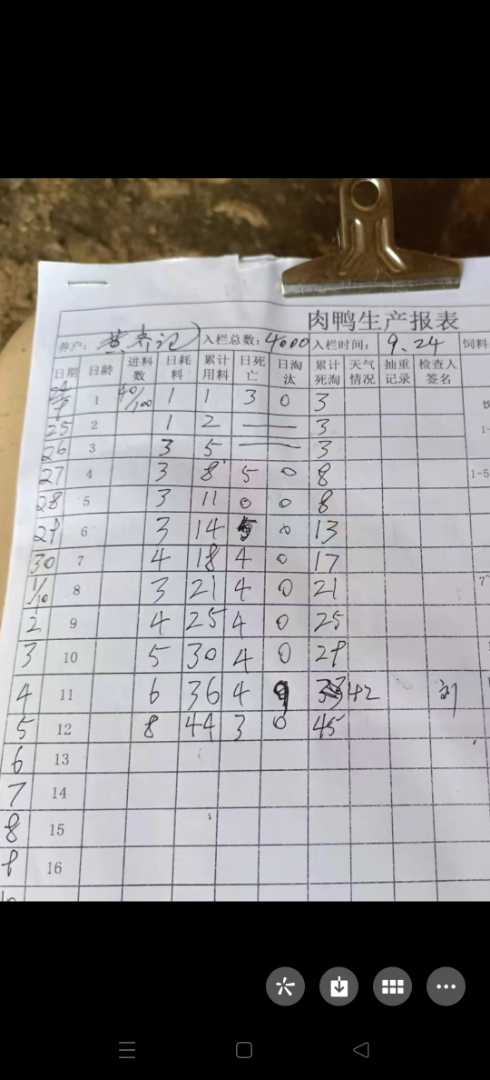 肉鸭生产报表
养户: 入栏总数: 4000 入栏时间: 9.24 饲料
日期 日龄 进料数 日耗料 累计用料 日死亡 日淘汰 累计死淘 天气情况 抽重记录 检查人签名
1 40/100 1 1 3 0 3
25 2 1 2 3
26 3 3 5 3
27 4 3 8 5 0 8
28 5 3 11 0 0 8
29 6 3 14 5 0 13
30 7 4 18 4 0 17
1/10 8 3 21 4 0 21
2 9 4 25 4 0 25
3 10 5 30 4 0 29
4 11 6 36 4 9 33 42 刘
5 12 8 44 3 0 45
6 13
7 14
8 15
9 16